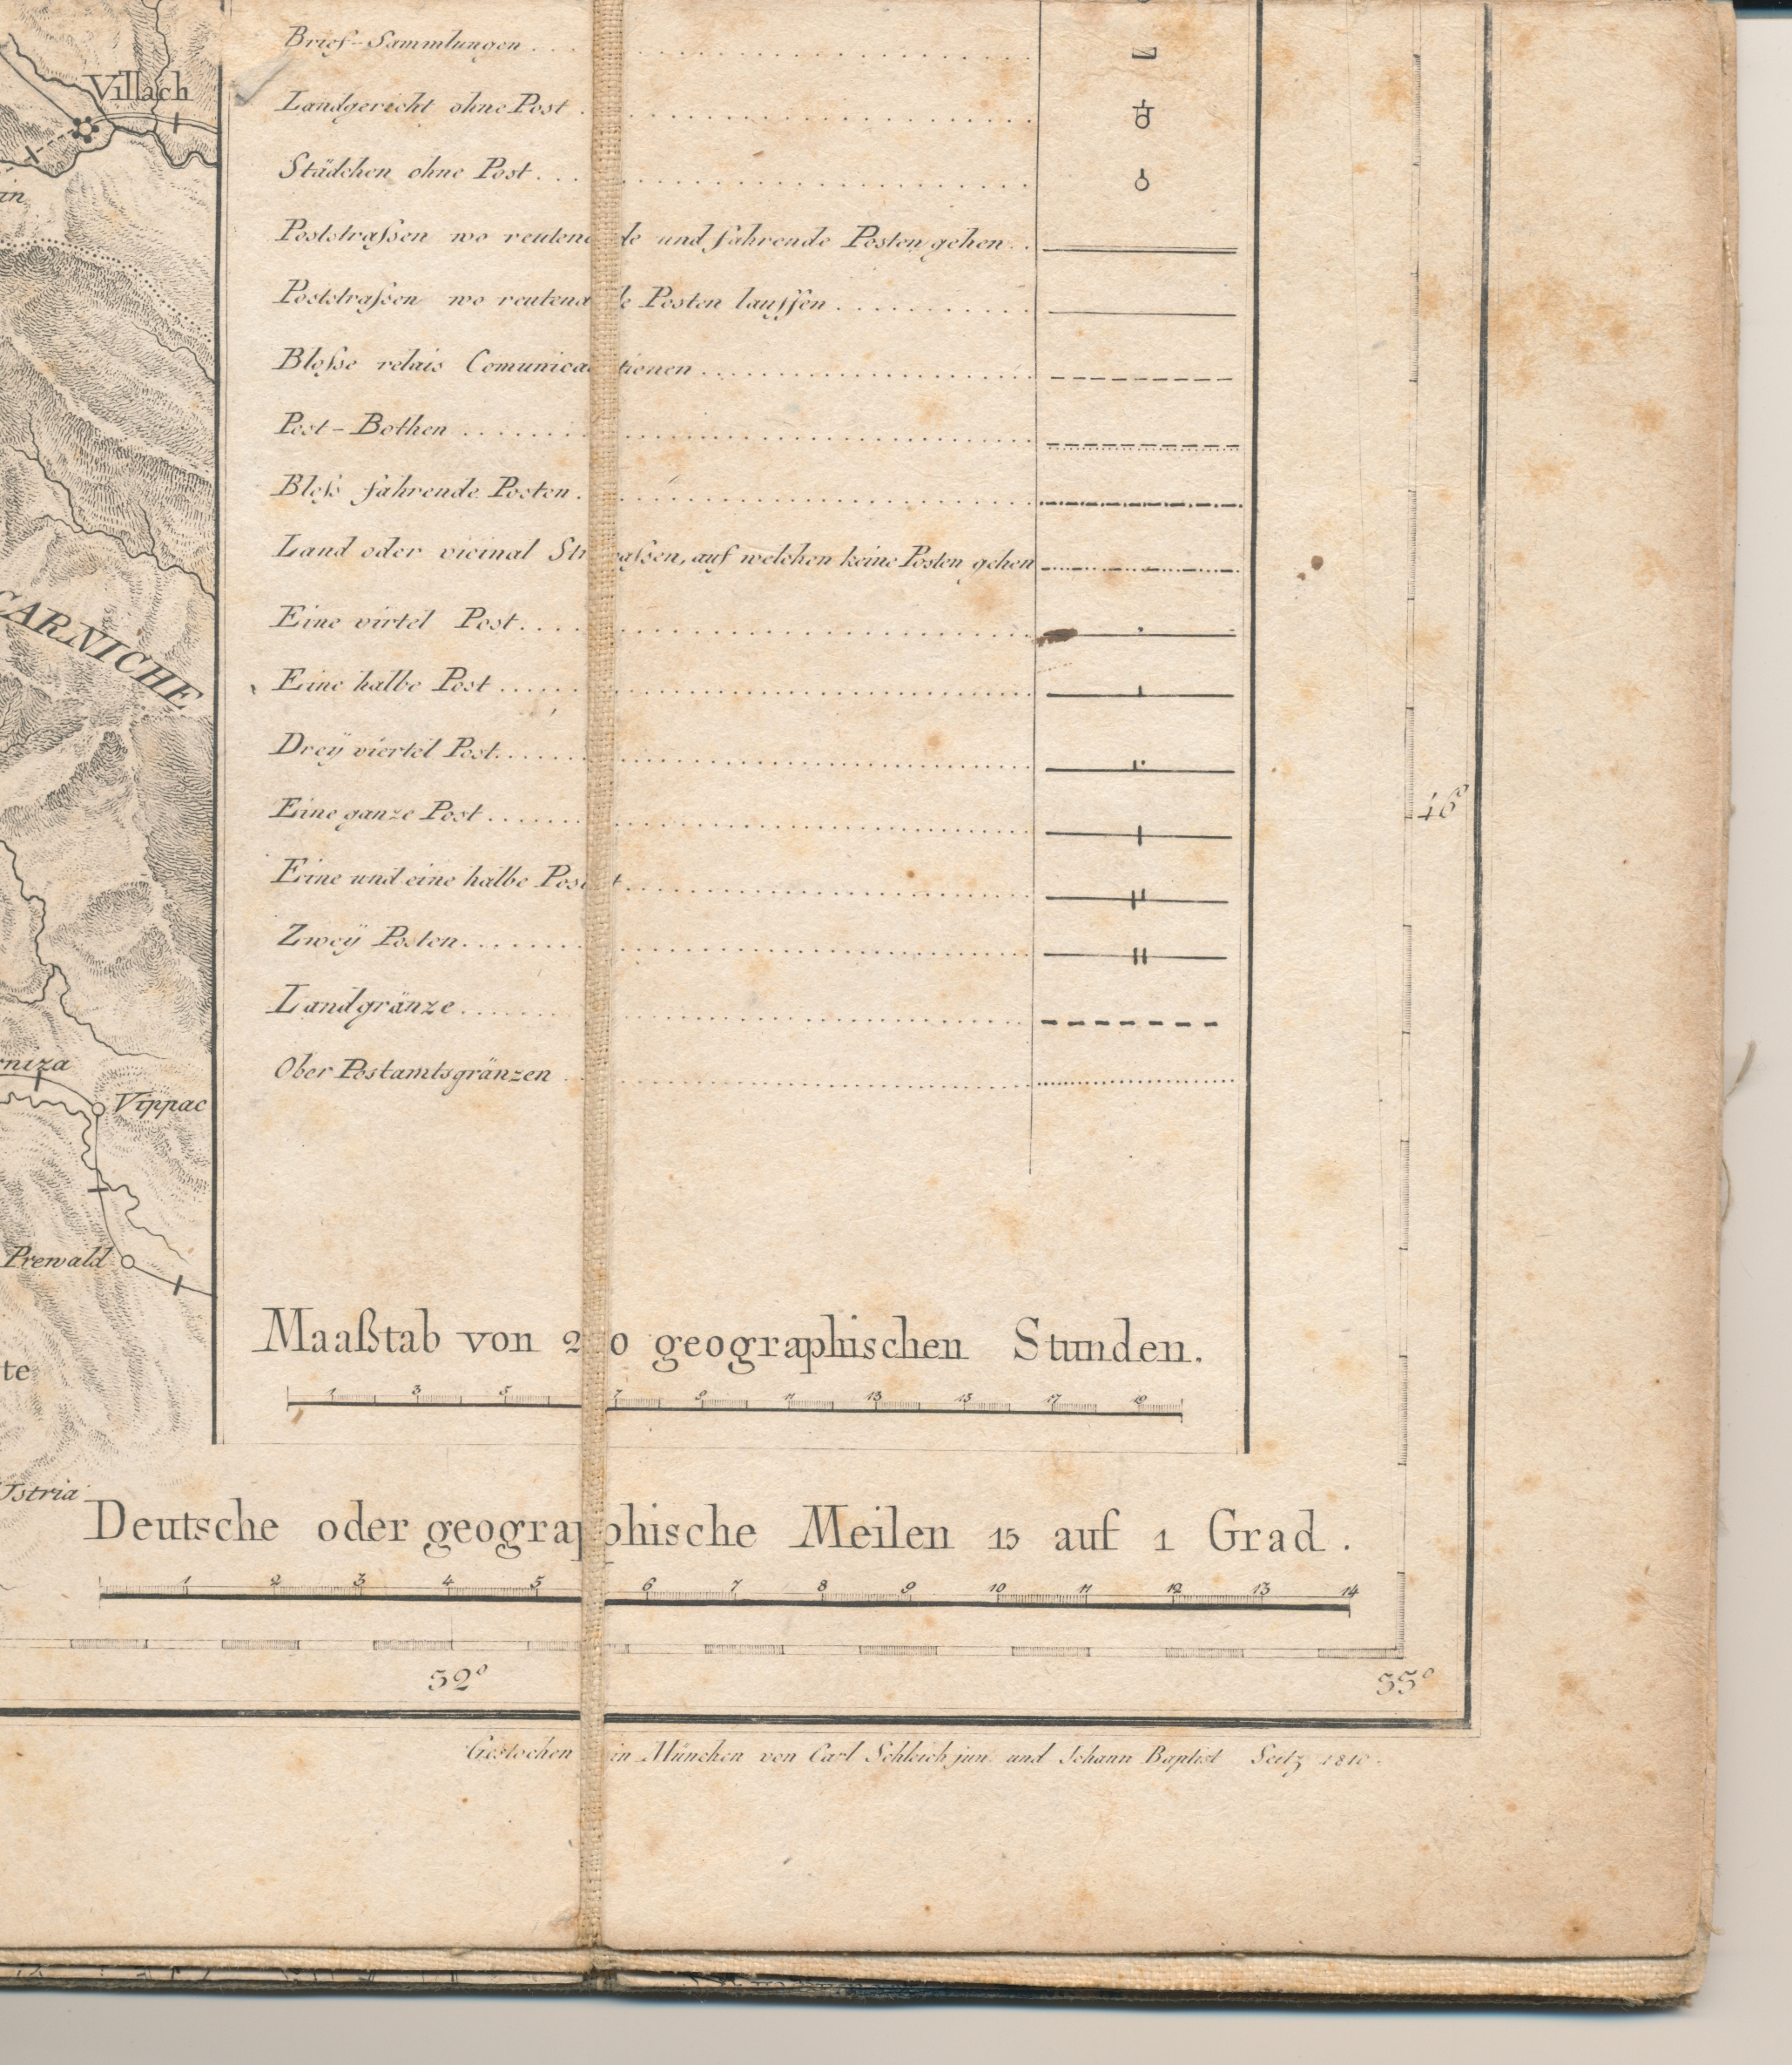 Brief-Sammlungen
Villach
Landgericht ohne Post
Städchen ohne Post
Poststraſsen wo reutende und fahrende Posten gehen
Poststraſsen wo reutende Posten lauffen
Bloſse relais Comunicationen
Post-Bothen
Bloſs fahrende Posten
Land oder vicinal Straſsen, auf welchen keine Posten gehen
CARNICHE
Eine virtel Post
Eine halbe Post
Dreÿ viertel Post
46°
Eine ganze Post
Eine und eine halbe Post
Zweÿ Posten
Landgränze
Ober Postamtsgränzen
Vippac
Prewald
Maaßtab von 20 geographischen Stunden.
1 3 5 7 9 11 13 15 17 19
Istria
Deutsche oder geographische Meilen 15 auf 1 Grad.
1 2 3 4 5 6 7 8 9 10 11 12 13 14
52° 55°
Gestochen in München von Carl Schleich jun. und Johann Baptist Seitz 1810.